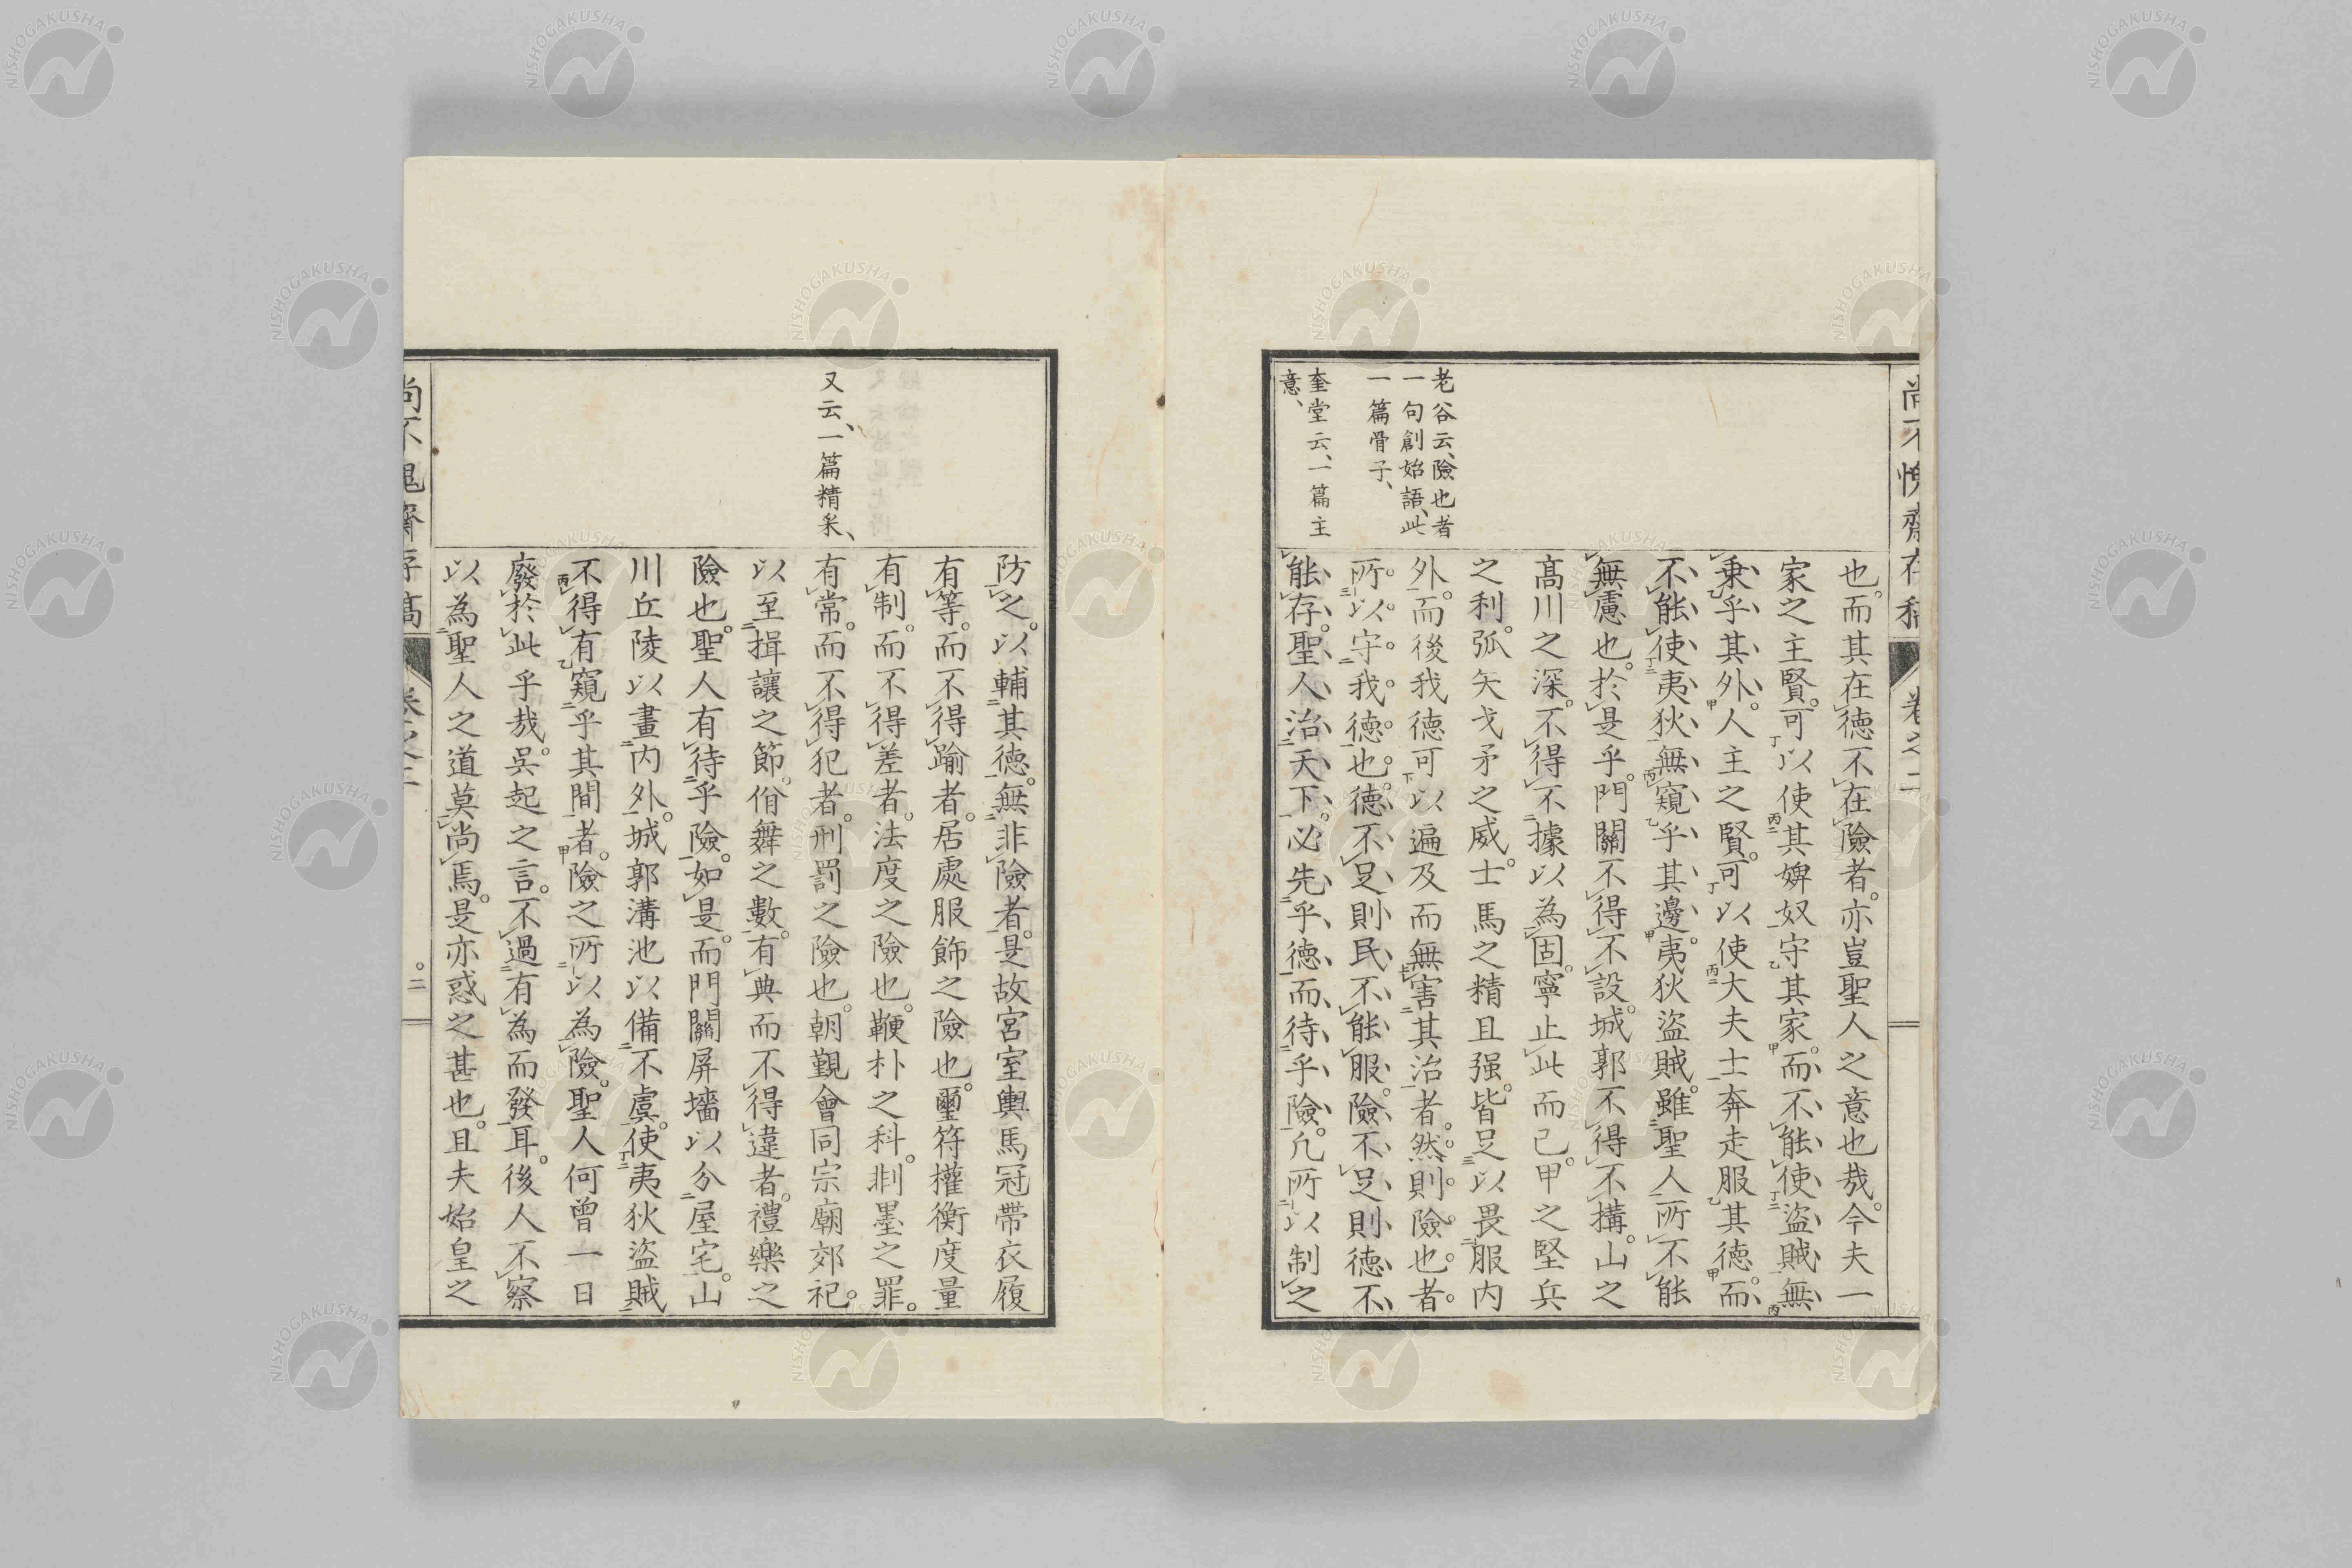 尚不愧齋存稿
卷之二
也。而其在德不在險者。亦豈聖人之意也哉。今夫一
家之主賢。可以使其婢奴守其家。而不能使盜賊無
乗乎其外。人主之賢。可以使大夫士奔走服其德。而
不能使夷狄無窺乎其邊。夷狄盜賊。雖聖人所不能
無慮也。於是乎。門關不得不設。城郭不得不搆。山之
髙川之深。不得不據以為固。寧止此而已。甲之堅兵
之利。弧矢戈矛之威。士馬之精且强。皆足以畏服内
外。而後我德可以遍及而無害其治者。然則險也者。
所以守我德也。德不足則民不能服。險不足則德不
能存。聖人治天下。必先乎德而待乎險。凢所以制之
老谷云、險也者
一句創始語、此
一篇骨子、
奎堂云、一篇主
意、
防之。以輔其德。無非險者。是故宮室輿馬冠帶衣履
有等。而不得踰者。居處服飾之險也。璽符權衡度量
有制。而不得差者。法度之險也。鞭朴之科。剕墨之罪。
有常。而不得犯者。刑罰之險也。朝覲會同宗廟郊祀。
以至揖讓之節。佾舞之數。有典而不得違者。禮樂之
險也。聖人有待乎險。如是。而門關屏墻以分屋宅。山
川丘陵以畫内外。城郭溝池以備不虞。使夷狄盜賊
不得有窺乎其間者。險之所以為險。聖人何曾一日
廢於此乎哉。吳起之言。不過有為而發耳。後人不察
以為聖人之道莫尚焉。是亦惑之甚也。且夫始皇之
又云、一篇精采、
尚不愧齋存稾
卷之二
二